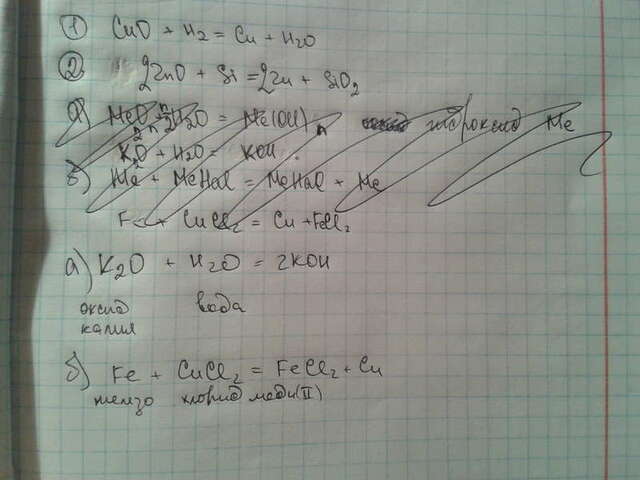 1 CuO + H2 = Cu + H2O
2 2ZnO + Si = 2Zn + SiO2
а) MeO + H2O = Me(OH)n гидроксид Me
K2O + H2O = KOH
б) Me + MeHal = MeHal + Me
Fe + CuCl2 = Cu + FeCl2
а) K2O + H2O = 2KOH
оксид вода
калия
б) Fe + CuCl2 = FeCl2 + Cu
железо хлорид меди(II)